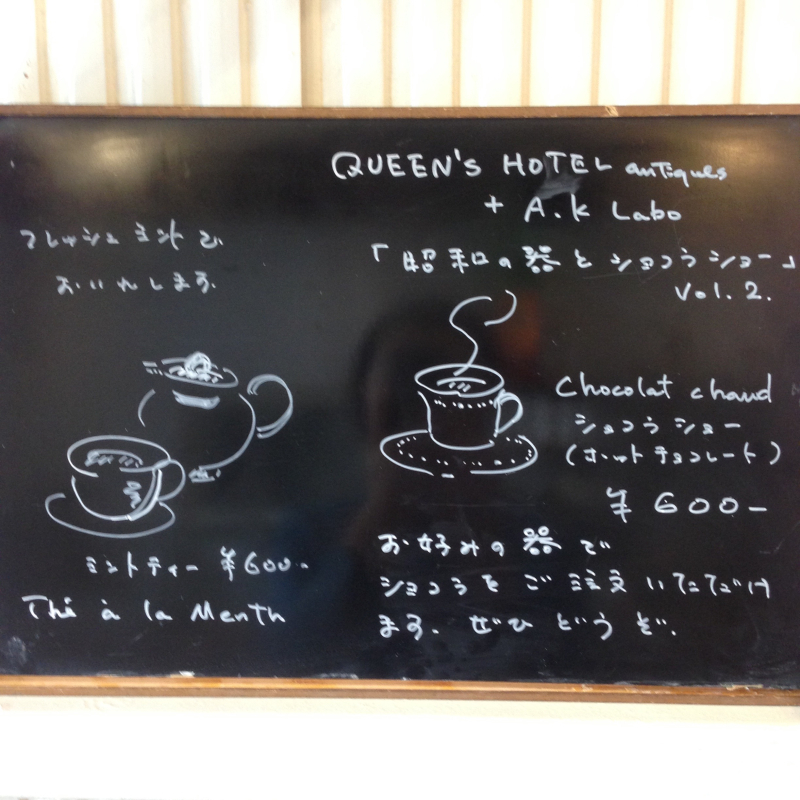 QUEEN'S HOTEL antiques
+ A.K Labo
「昭和の器とショコラショー」
Vol. 2.
フレッシュミントで
おいれします。
Chocolat chaud
ショコラショー
(ホットチョコレート)
¥600-
ミントティー ¥600-
Thé à la Menth
お好みの器で
ショコラをご注文いただけ
ます。ぜひどうぞ。